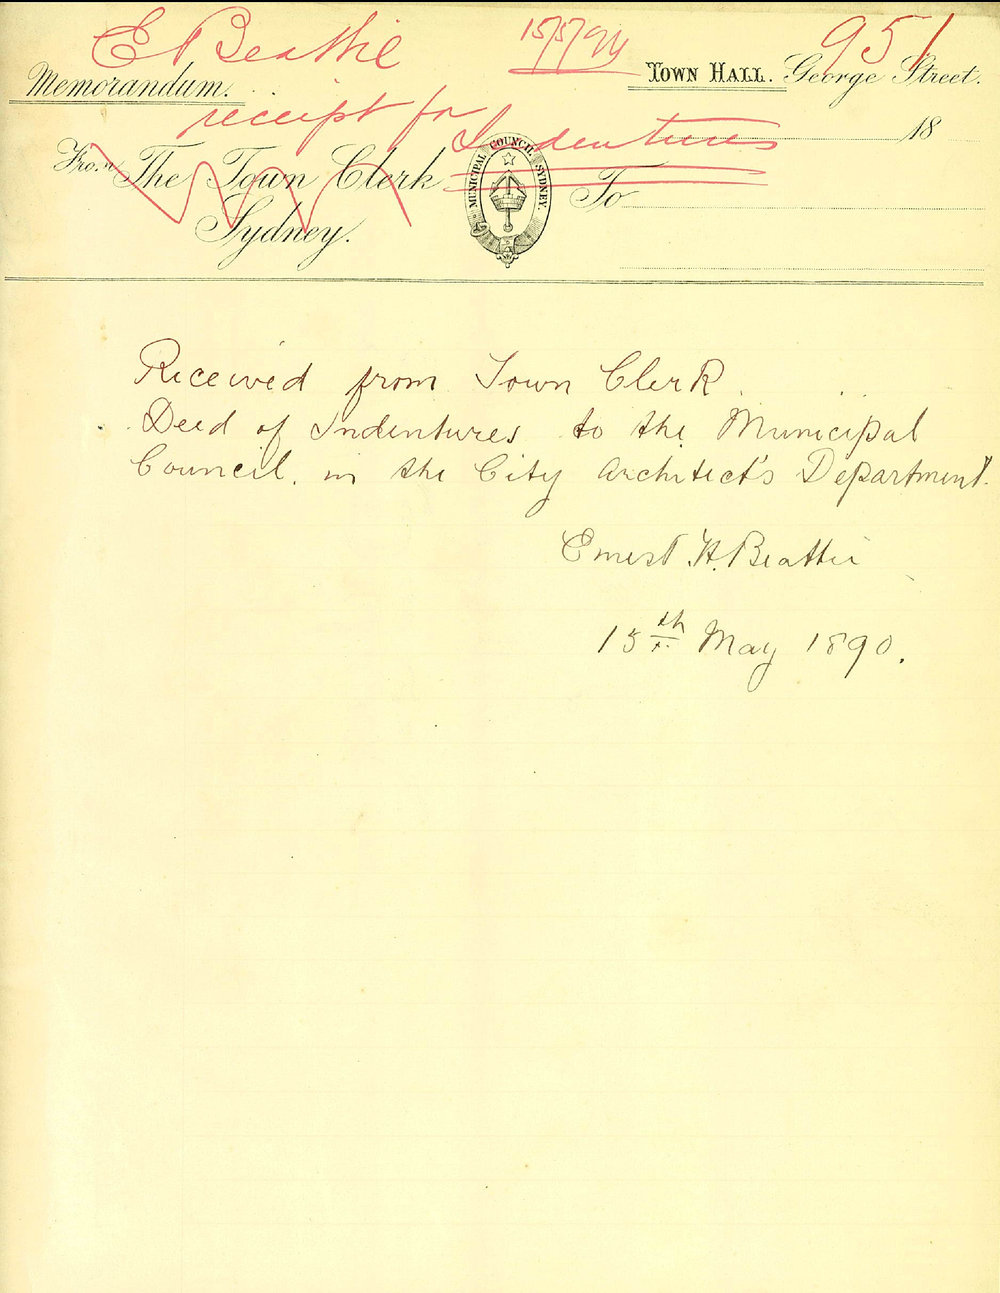 E Beattie
15/5/90
951
Memorandum.
TOWN HALL. George Street.
receipt for Indentures
18
From The Town Clerk
MUNICIPAL COUNCIL. SYDNEY.
To
Sydney.
Received from Town Clerk
Deed of Indentures to the Municipal
Council. in the City Architect's Department.
Ernest H. Beattie
15th May 1890.